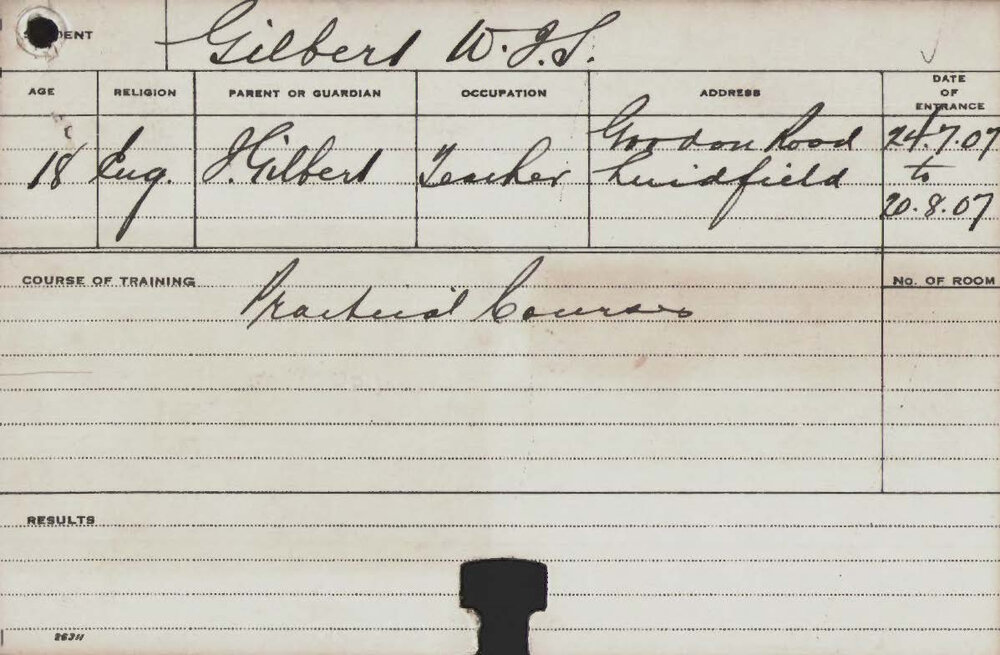 STUDENT Gilbert W.J.S.
AGE RELIGION PARENT OR GUARDIAN OCCUPATION ADDRESS DATE OF ENTRANCE
18 Eng. J. Gilbert Teacher Gordon Road
Lindfield
24.7.07
to
20.8.07
COURSE OF TRAINING Practical Courses
No. OF ROOM
RESULTS
26311